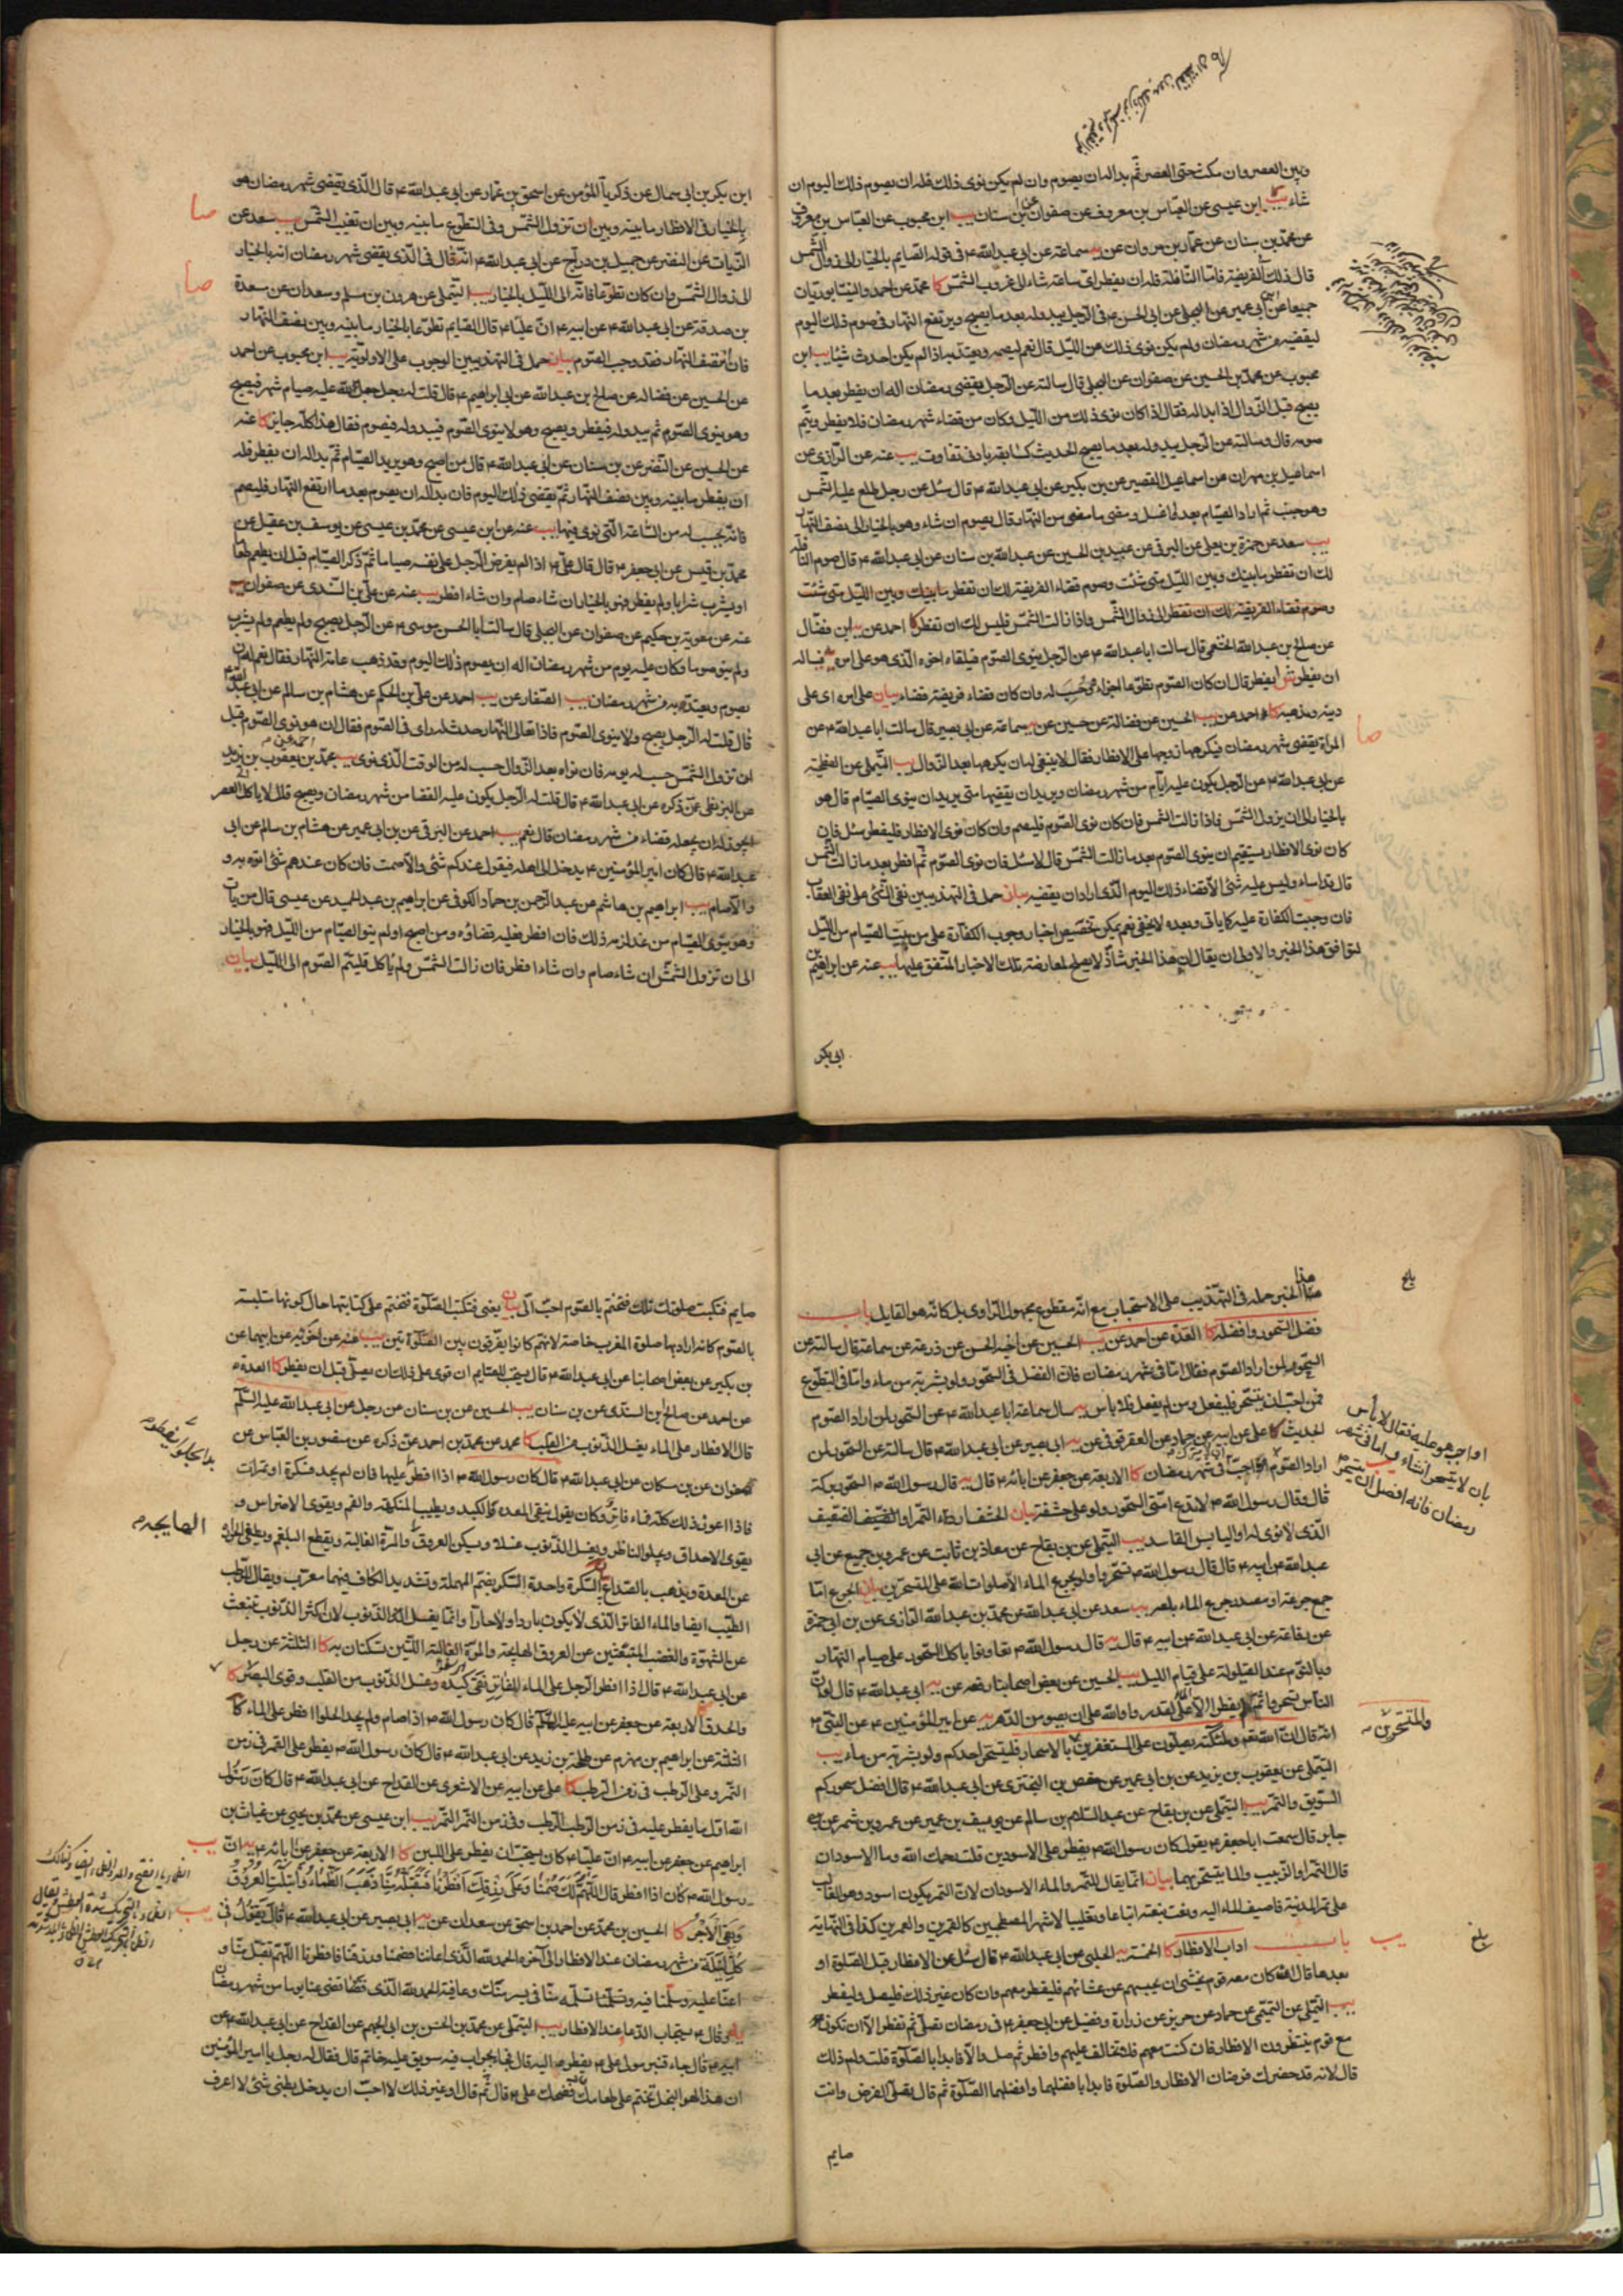 وبين العصر وان مكث حتى العصر ثم بدا له ان يصوم وان لم يكن نوى ذلك فله ان يصوم ذلك اليوم ان
شاء يب ابن عيسى عن العباس بن معروف عن صفوان عن ابن سنان يب ابن محبوب عن العباس بن معروف
عن محمد بن سنان عن عمار بن مروان عن سماعة عن ابي عبد الله ع في قوله الصايم بالخيار الى زوال الشمس
قال ذلك الفريضة فاما النافلة فله ان يفطر اى ساعة شاء الى غروب الشمس كا محمد عن احمد والنيسابوريان
جميعا عن ابن ابي عمير عن البجلي عن ابي الحسن ع في الرجل يبدو له بعد ما يصبح ويرتفع النهار في صوم ذلك اليوم
ليقضيه من شهر رمضان ولم يكن نوى ذلك من الليل قال نعم ليصمه ويعتد به اذا لم يكن احدث شيئا يب ابن
محبوب عن محمد بن الحسين عن صفوان عن البجلي قال سالته عن الرجل يقضي رمضان اله ان يفطر بعد ما
يصبح قبل الزوال اذا بدا له فقال اذا كان نوى ذلك من الليل وكان من قضاء شهر رمضان فلا يفطر ويتم
صومه قال وسالته عن الرجل يبدو له بعد ما يصبح الحديث كسابقه بادنى تفاوت يب عنه عن الرازي عن
اسماعيل بن مهران عن اسماعيل القصير عن بن بكير عن ابي عبد الله ع قال سئل عن رجل طلع عليه الشمس
وهو جنب ثم اراد الصيام بعد ما اغتسل ومضى ما مضى من النهار قال يصوم ان شاء وهو بالخيار الى نصف النهار
يب سعد عن حمزة بن يعلى عن البرقي عن عبيد بن الحسين عن عبد الله بن سنان عن ابي عبد الله ع قال صوم النافلة
لك ان تفطر ما بينك وبين الليل متى شئت وصوم قضاء الفريضة لك ان تفطر ما بينك وبين الليل متى شئت
وصوم قضاء الفريضة لك ان تفطر الى زوال الشمس واذا زالت الشمس فليس لك ان تفطر كا احمد عن ابن فضال
عن صالح بن عبد الله الخثعمي قال سالت ابا عبد الله ع عن الرجل ينوى الصوم فيلقاه اخوه الذى هو على امره فيساله
ان يفطر ايفطر قال ان كان الصوم تطوعا اجزاه وحسب له وان كان قضاء فريضة قضاه بيان على امره اى على
دينه ومذهبه كا احمد عن يب الحسين عن فضالة عن حسين عن سماعة عن ابي بصير قال سالت ابا عبد الله ع عن
المراة تقضي شهر رمضان فيكرهها زوجها على الافطار فقال لا ينبغي له ان يكرهها بعد الزوال يب التيملي عن الفطحية
عن ابي عبد الله ع عن الرجل يكون عليه ايام من شهر رمضان ويريد ان يقضيها متى يريد ان ينوى الصيام قال هو
بالخيار الى ان يزول الشمس فاذا زالت الشمس فان كان نوى الصوم فليصم وان كان نوى الافطار فليفطر سئل فان
كان نوى الافطار يستقيم ان ينوى الصوم بعد ما زالت الشمس قال لا سئل فان نوى الصوم ثم افطر بعد ما زالت الشمس
قال قد اساء وليس عليه شئ الا قضاء ذلك اليوم الذى اراد ان يقضيه بيان حمل في التهذيبين نفى الشئ على نفى العقاب
فان وجبت الكفارة عليه كما ياتى وبعده لا يخفى نعم يمكن تخصيص اخبار وجوب الكفارة على من بيت الصيام من الليل
لتوافق هذا الخبر والاولى ان يقال ان هذا الخبر شاذ لا يصلح لمعارضة تلك الاخبار المتفق عليها يب عنه عن ابراهيم بن
ابى بكر
صا
ابن بكر بن ابي سمال عن زكريا المؤمن عن اسحق بن عمار عن ابي عبد الله ع قال الذى يقضي شهر رمضان هو
بالخيار في الافطار ما بينه وبين ان تزول الشمس وفي التطوع ما بينه وبين ان تغيب الشمس يب سعد عن
الزيات عن النضر عن جميل بن دراج عن ابي عبد الله ع انه قال في الذى يقضي شهر رمضان انه بالخيار
الى زوال الشمس وان كان تطوعا فانه الى الليل بالخيار يب التيملي عن هرون بن مسلم وسعدان عن مسعدة
بن صدقة عن ابي عبد الله ع عن ابيه ع ان عليا ع قال الصايم تطوعا بالخيار ما بينه وبين نصف النهار
فان انتصف النهار فقد وجب الصوم بيان حمل في التهذيبين الوجوب على الاولوية يب ابن محبوب عن احمد
عن الحسين عن فضالة عن صالح بن عبد الله عن ابي ابراهيم ع قال قلت له رجل جعل لله عليه صيام شهر فيصبح
وهو ينوى الصوم ثم يبدو له فيفطر ويصبح وهو لا ينوى الصوم فيبدو له فيصوم فقال هذا كله جايز كا عنه
عن الحسين عن النضر عن بن سنان عن ابي عبد الله ع قال من اصبح وهو يريد الصيام ثم بدا له ان يفطر فله
ان يفطر ما بينه وبين نصف النهار ثم يقضي ذلك اليوم فان بدا له ان يصوم بعد ما ارتفع النهار فليصم
فانه يحسب له من الساعة التى نوى فيها يب عنه عن ابن عيسى عن محمد بن عيسى عن يوسف بن عقيل عن
محمد بن قيس عن ابي جعفر ع قال قال على ع اذا لم يفرض الرجل على نفسه صياما ثم ذكر الصيام قبل ان يطعم طعاما
او يشرب شرابا ولم يفطر فهو بالخيار ان شاء صام وان شاء افطر يب عنه عن على بن السندى عن صفوان
عنه عن معوية بن حكيم عن صفوان عن البجلي قال سالت ابا الحسن موسى ع عن الرجل يصبح ولم يطعم ولم يشرب
ولم ينو صوما وكان عليه يوم من شهر رمضان اله ان يصوم ذلك اليوم وقد ذهب عامة النهار فقال نعم له ان
يصوم ويعتد به من شهر رمضان يب الصفار عن يب احمد عن على بن الحكم عن هشام بن سالم عن ابي عبد الله ع
قال قلت له الرجل يصبح ولا ينوى الصوم فاذا تعالى النهار حدث له راى في الصوم فقال ان هو نوى الصوم قبل
ان تزول الشمس حسب له يومه فان نواه بعد الزوال حسب له من الوقت الذى نوى يب محمد بن يعقوب بن يزيد
عن البزنطي عمن ذكره عن ابي عبد الله ع قال قلت له الرجل يكون عليه القضا من شهر رمضان ويصبح فلا ياكل الى العصر
ايجوز له ان يجعله قضاء من شهر رمضان قال نعم يب احمد عن البرقي عن بن ابي عمير عن هشام بن سالم عن ابي
عبد الله ع قال كان امير المؤمنين ع يدخل الى اهله فيقول عندكم شئ والا صمت فان كان عندهم شئ اتوه به و
والا صام يب ابراهيم بن هاشم عن عبد الرحمن بن حماد الكوفي عن ابراهيم بن عبد الحميد عن عيسى قال من بات
وهو ينوى الصيام من غد لزمه ذلك فان افطر فعليه قضاؤه ومن اصبح ولم ينو الصيام من الليل فهو بالخيار
الى ان تزول الشمس ان شاء صام وان شاء افطر فان زالت الشمس ولم ياكل فليتم الصوم الى الليل بيان
صا
صا
هذا الخبر حمله في التهذيب على الاستحباب مع انه مقطوع مجهول الراوى بل كانه هو القايل باب
فضل السحور وافضله كا العدة عن احمد عن يب الحسين عن اخيه الحسن عن زرعة عن سماعة قال سالته عن
السحور لمن اراد الصوم فقال اما في شهر رمضان فان الفضل في السحور ولو بشربة من ماء واما في التطوع
فمن احب ان يتسحر فليفعل ومن لم يفعل فلا باس سال سماعة ابا عبد الله ع عن السحور لمن اراد الصوم
الحديث كا على عن ابيه عن حماد عن العقرقوفي عن ابي بصير عن ابي عبد الله ع قال سالته عن السحور لمن
اراد الصوم اواجب في شهر رمضان كا الاربعة عن جعفر عن ابائه ع قال قال رسول الله ص السحور بركة
قال وقال رسول الله ص لا تدع امتى السحور ولو على حشفة بيان الحشف رداء التمر او الضعيف
الذى لا نوى له او اليابس الفاسد يب التيملي عن بن بقاح عن معاذ بن ثابت عن عمرو بن جميع عن ابي
عبد الله عن ابيه ع قال قال رسول الله ص تسحروا ولو بجرع الماء الا صلوات الله على المتسحرين بيان الجرع اما
جمع جرعة او مصدر جرع الماء بلعه يب سعد عن ابي عبد الله عن محمد بن عبد الله الرازى عن بن ابي حمزة
عن رفاعة عن ابي عبد الله عن ابيه ع قال قال رسول الله ص تعاونوا باكل السحور على صيام النهار
وبالنوم عند القيلولة على قيام الليل يب الحسين عن بعض اصحابنا رفعه عن ابي عبد الله ع قال لو ان
الناس تسحروا ثم لم يفطروا الا على الماء لقدروا والله على ان يصوموا الدهر عن امير المؤمنين ع عن النبى ص
انه قال ان الله تعالى وملائكته يصلون على المستغفرين بالاسحار فليتسحر احدكم ولو بشربة من ماء يب
التيملي عن يعقوب بن يزيد عن بن ابي عمير عن حفص بن البخترى عن ابي عبد الله ع قال افضل سحوركم
السويق والتمر يب التيملي عن بن بقاح عن عبد السلام بن سالم عن سيف بن عميرة عن عمرو بن شمر عن
جابر قال سمعت ابا جعفر ع يقول كان رسول الله ص يفطر على الاسودين قلت رحمك الله وما الاسودان
قال التمر والماء والزبيب والماء يتسحر بهما بيان انما يقال للتمر والماء الاسودان لان التمر يكون اسود وهو الغالب
على تمر المدينة فاضيف الماء اليه ونعت بنعته اتباعا وتغليبا لاشهر المصطحبين كالقمرين والعمرين كذا في النهاية
باب اداب الافطار كا الخمسة الحلبي عن ابي عبد الله ع قال سئل عن الافطار قبل الصلوة او
بعدها قال ان كان معه قوم يخشى ان يحبسهم عن عشائهم فليفطر معهم وان كان غير ذلك فليصل وليفطر
يب التيملي عن التميمي عن حماد عن حريز عن زرارة وفضيل عن ابي جعفر ع في رمضان تصلي ثم تفطر الا ان تكون
مع قوم ينتظرون الافطار فان كنت معهم فلا تخالف عليهم وافطر ثم صل والا فابدا بالصلوة قلت ولم ذلك
قال لانه قد حضرك فرضان الافطار والصلوة فابدا بافضلهما وافضلهما الصلوة ثم قال تصلي الفرض وانت
صايم
بلغ
اواجب هو عليه فقال لا باس
بان لا يتسحر ان شاء واما في شهر
رمضان فانه افضل ان يتسحر
والمتسحرين
بلغ
صايم فتكتب صلوتك تلك فتختم بالصوم احب الى بيان يعنى فتكتب الصلوة فتختم على كتابتها حال كونها متلبسة
بالصوم كانه اراد بها صلوة المغرب خاصة لانهم كانوا يفرقون بين الصلوتين يب عنه عن اخويه عن ابيهما عن
بن بكير عن بعض اصحابنا عن ابي عبد الله ع قال يستحب للصايم ان قوى على ذلك ان يصلي قبل ان يفطر كا العدة
عن احمد عن صالح بن السندى عن بن سنان يب الحسين عن بن سنان عن رجل عن ابي عبد الله عليه السلام
قال الافطار على الماء يغسل الذنوب من القلب كا محمد عن محمد بن احمد عمن ذكره عن منصور بن العباس عن
صفوان عن بن مسكان عن ابي عبد الله ع قال كان رسول الله ص اذا افطر عليها فان لم يجد فسكرة او تمرات
فاذا اعوز ذلك كله فماء فاتر وكان يقول ينقى المعدة والكبد ويطيب النكهة والفم ويقوى الاضراس و
يقوى الاحداق ويجلو الناظر ويغسل الذنوب غسلا ويسكن العروق والمرة الغالبة ويقطع البلغم ويطفى الحرارة
عن المعدة ويذهب بالصداع بيان السكرة واحدة السكر بضم المهملة وتشديد الكاف فيهما معرب ويقال للرطب
الطيب ايضا والماء الفاتر الذى لا يكون باردا ولا حارا وانما يغسل الذنوب لان اكثر الذنوب تنبعث
عن الشهوة والغضب المنبعثين عن العروق الهايجة والمرة الغالبة اللتين تسكنان به كا الثلثة عن رجل
عن ابي عبد الله ع قال اذا افطر الرجل على الماء الفاتر نقى كبده وغسل الذنوب من القلب وقوى البصر
والحدق كا الاربعة عن جعفر عن ابيه عليه السلام قال كان رسول الله ص اذا صام ولم يجد الحلوا افطر على الماء كا
الثلثة عن ابراهيم بن مهزم عن طلحة بن زيد عن ابي عبد الله ع قال كان رسول الله ص يفطر على التمر في زمن
التمر وعلى الرطب في زمن الرطب كا على عن ابيه عن الاشعرى عن القداح عن ابي عبد الله ع قال كان رسول
الله اول ما يفطر عليه في زمن الرطب الرطب وفي زمن التمر التمر يب ابن عيسى عن محمد بن يحيى عن غياث بن
ابراهيم عن جعفر عن ابيه ع ان عليا ع كان يستحب ان يفطر على اللبن كا الاربعة عن جعفر عن ابائه ع ان
رسول الله ص كان اذا افطر قال اللهم لك صمنا وعلى رزقك افطرنا فتقبله منا ذهب الظماء وابتلت العروق
وبقى الاجر كا الحسين بن محمد عن احمد بن اسحق عن سعدان عن ابي بصير عن ابي عبد الله ع قال يقول في
كل ليلة من شهر رمضان عند الافطار الى اخره الحمد لله الذى اعاننا فصمنا ورزقنا فافطرنا اللهم تقبل منا و
اعنا عليه وسلمنا فيه وتسلمه منا في يسر منك وعافية الحمد لله الذى قضى عنا يوما من شهر رمضان
وقال ع يستجاب الدعاء عند الافطار يب التيملي عن محمد بن الحسن بن ابي الجهم عن القداح عن ابي عبد الله ع عن
ابيه ع قال جاء قنبر مولى على ع بفطره اليه قال فجاء بجراب فيه سويق عليه خاتم قال فقال له رجل يا امير المؤمنين
ان هذا لهو البخل تختم على طعامك فضحك على ع قال ثم قال او غير ذلك لا احب ان يدخل بطنى شئ لا اعرف
بدا بحلواء يفطر
الهايجة